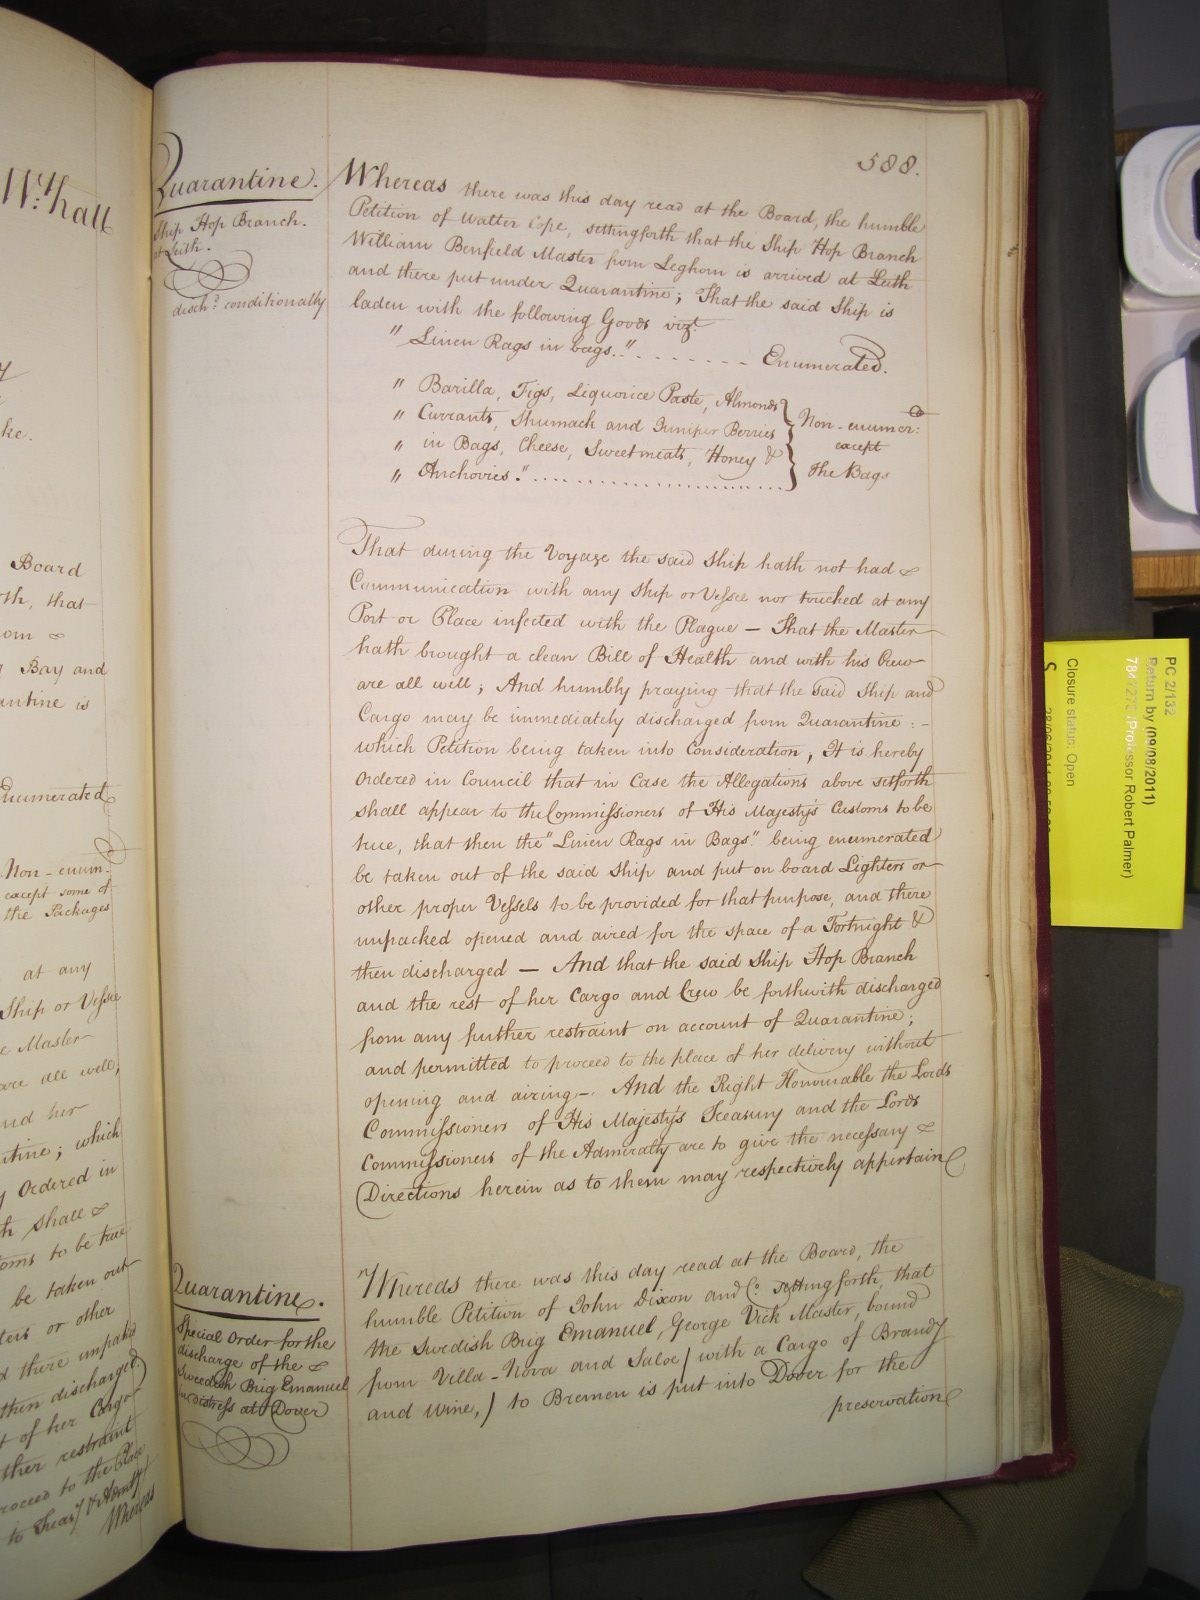 Wt:hall
Board
rth, that
om
Bay and
antine is
Enumerated
Non-enum:
except some of
the Packages
at any
Ship or Vessel
e Master
are all well;
and her
ntine; which
y Ordered in
th shall &
oms to be true
be taken out
ters or other
d there unpack'd
then discharged
t of her Cargo
ther restraint
roceed to the Place
to Treasy & Admty
Whereas
588.
Quarantine.
Ship Hop Branch.
at Leith.
disch:d conditionally
Whereas there was this day read at the Board, the humble
Petition of Walter Cope, settingforth that the Ship Hop Branch
William Benfield Master from Leghorn is arrived at Leith
and there put under Quarantine; That the said Ship is
laden with the following Goods vizt.
" Linen Rags in bags." . . . . . . . Enumerated.
" Barilla, Figs, Liquorice Paste, Almonds
" Currants, Shumack and Juniper Berries
" in Bags, Cheese, Sweetmeats, Honey &
" Anchovies." . . . . . . . . . . . . . . . . . . . . . .
Non-enumer:
except
the Bags
That during the Voyage the said Ship hath not had
Communication with any Ship or Vessel nor touched at any
Port or Place infected with the Plague — That the Master
hath brought a clean Bill of Health and with his Crew
are all well; And humbly praying that the said Ship and
Cargo may be immediately discharged from Quarantine : -
which Petition being taken into Consideration, It is hereby
Ordered in Council that in Case the Allegations above setforth
shall appear to the Commissioners of His Majesty's Customs to be
true, that then the "Linen Rags in Bags" being enumerated
be taken out of the said Ship and put on board Lighters or
other proper Vessels to be provided for that purpose, and there
unpacked opened and aired for the space of a Fortnight &
then discharged — And that the said Ship Hop Branch
and the rest of her Cargo and Crew be forthwith discharged
from any further restraint on account of Quarantine;
and permitted to proceed to the place of her delivery without
opening and airing -. And the Right Honourable the Lords
Commissioners of His Majesty's Treasury and the Lords
Commissioners of the Admiralty are to give the necessary
Directions herein as to them may respectively appertain
Quarantine.
Special Order for the
discharge of the
Sweedish Brig Emanuel
in distress at Dover
Whereas there was this day read at the Board, the
humble Petition of John Dixon and Co: settingforth, that
the Swedish Brig Emanuel, George Vick Master, bound
from Villa-Nova and Saloe/ with a Cargo of Brandy
and Wine,/ to Bremen is put into Dover for the
preservation
PC 2/132
Return by (09/08/2011)
(Professor Robert Palmer)
Closure status: Open